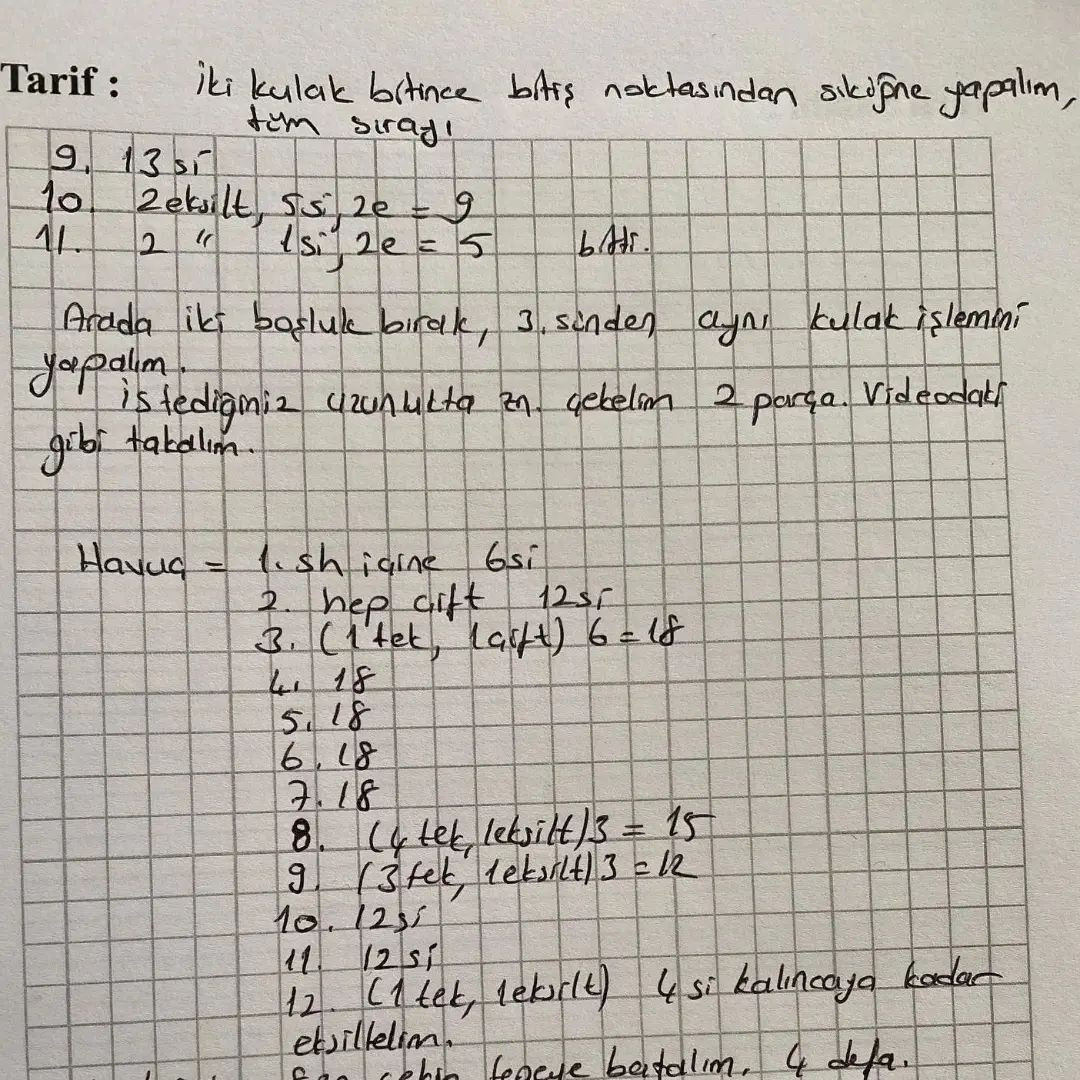 Tarif : iki kulak bitince bitiş noktasından sıkiğne yapalım,
tüm sırayı
9. 13 si
10. 2 eksilt, 5si, 2e = 9
11. 2 " 1si, 2e = 5 bitti.
Arada iki boşluk bırak, 3. sinden aynı kulak işlemini
yapalım.
istediğmiz uzunlukta zn. çekelim 2 parça. Videodaki
gibi takalım.
Havuç = 1. sh içine 6si
2. hep çift 12si
3. (1 tek, 1 çift) 6 = 18
4. 18
5. 18
6. 18
7. 18
8. (4 tek, 1eksilt) 3 = 15
9. (3 tek, 1eksilt) 3 = 12
10. 12si
11. 12 si
12. (1 tek, 1eksilt) 4 si kalıncaya kadar
eksiltelim.
tepeye batalım. 4 defa.